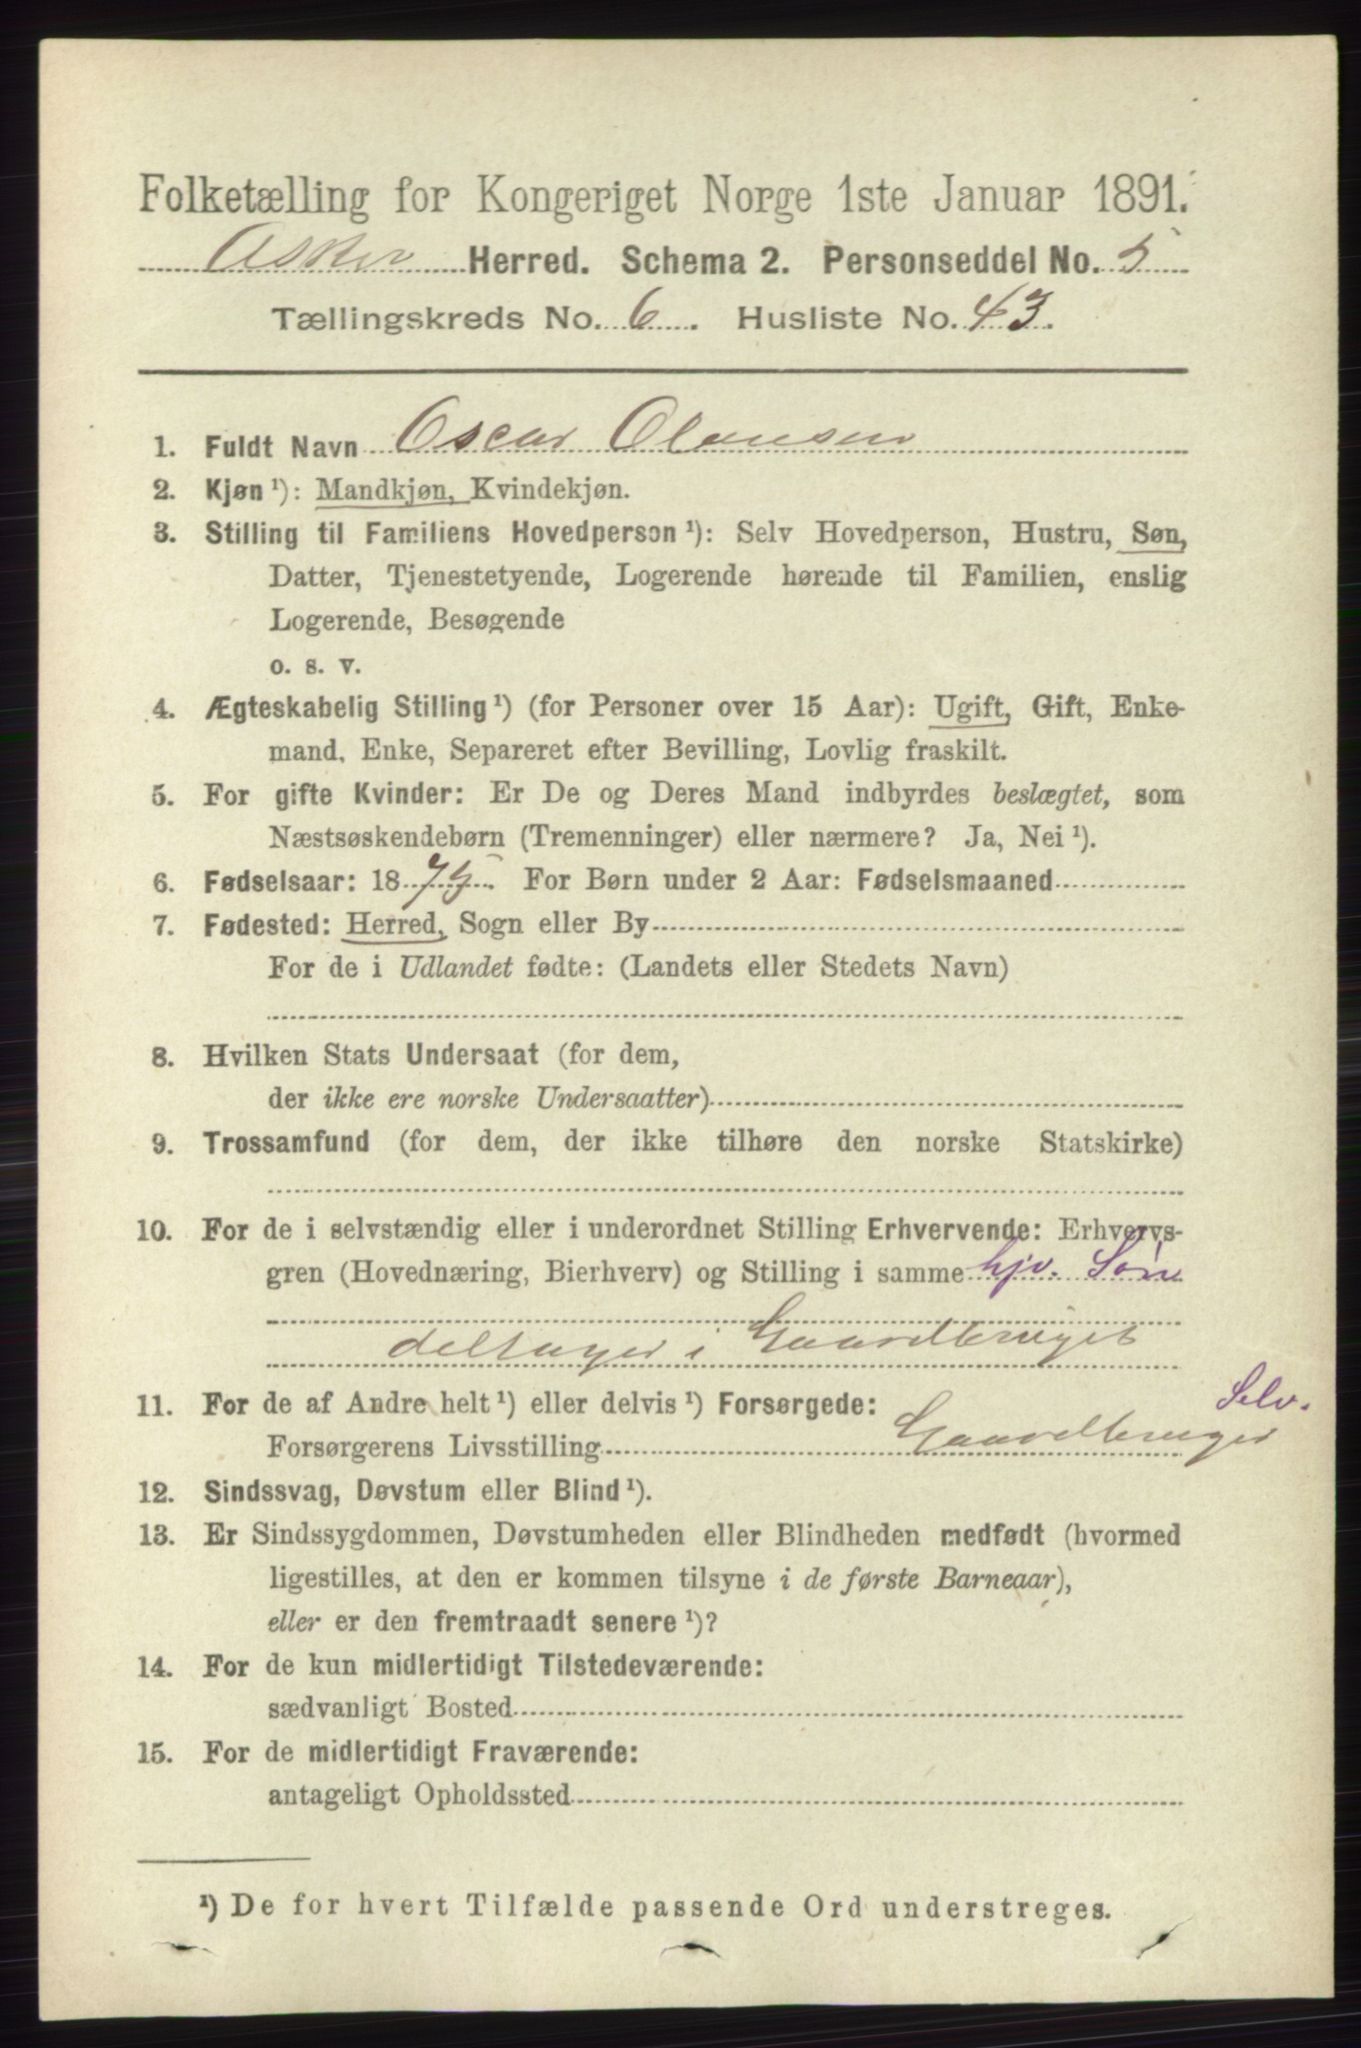 Folketælling for Kongeriget Norge 1ste Januar 1891.
Asker Herred. Schema 2. Personseddel No. 5
Tællingskreds No. 6. Husliste No. 43.
1. Fuldt Navn Oscar Olausen
2. Kjøn ¹): Mandkjøn, Kvindekjøn.
3. Stilling til Familiens Hovedperson ¹): Selv Hovedperson, Hustru, Søn,
Datter, Tjenestetyende, Logerende hørende til Familien, enslig
Logerende, Besøgende
o. s. v.
4. Ægteskabelig Stilling ¹) (for Personer over 15 Aar): Ugift, Gift, Enke-
mand, Enke, Separeret efter Bevilling, Lovlig fraskilt.
5. For gifte Kvinder: Er De og Deres Mand indbyrdes beslægtet, som
Næstsøskendebørn (Tremenninger) eller nærmere? Ja, Nei ¹).
6. Fødselsaar: 1875. For Børn under 2 Aar: Fødselsmaaned
7. Fødested: Herred, Sogn eller By
For de i Udlandet fødte: (Landets eller Stedets Navn)
8. Hvilken Stats Undersaat (for dem,
der ikke ere norske Undersaatter)
9. Trossamfund (for dem, der ikke tilhøre den norske Statskirke)
10. For de i selvstændig eller i underordnet Stilling Erhvervende: Erhvervs-
gren (Hovednæring, Bierhverv) og Stilling i samme hjv. Søn
deltager i Gaardbruget
11. For de af Andre helt ¹) eller delvis ¹) Forsørgede: Selv.
Forsørgerens Livsstilling Gaardbruger
12. Sindssvag, Døvstum eller Blind ¹).
13. Er Sindssygdommen, Døvstumheden eller Blindheden medfødt (hvormed
ligestilles, at den er kommen tilsyne i de første Barneaar),
eller er den fremtraadt senere ¹)?
14. For de kun midlertidigt Tilstedeværende:
sædvanligt Bosted
15. For de midlertidigt Fraværende:
antageligt Opholdssted
¹) De for hvert Tilfælde passende Ord understreges.